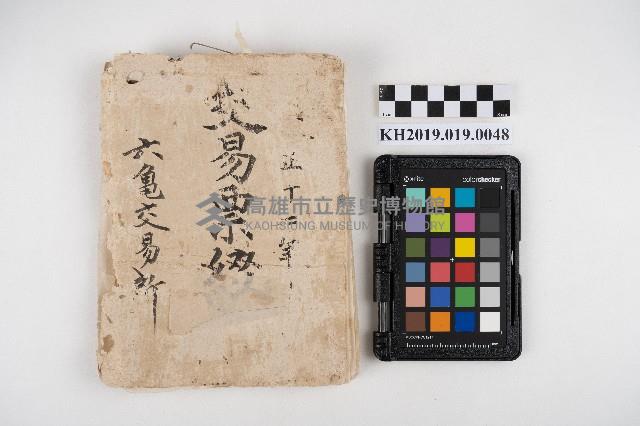 正十二年
交易票綴
六龜交易所
KH2019.019.0048
x-rite
colorchecker
高雄市立歷史博物館
KAOHSIUNG MUSEUM OF HISTORY